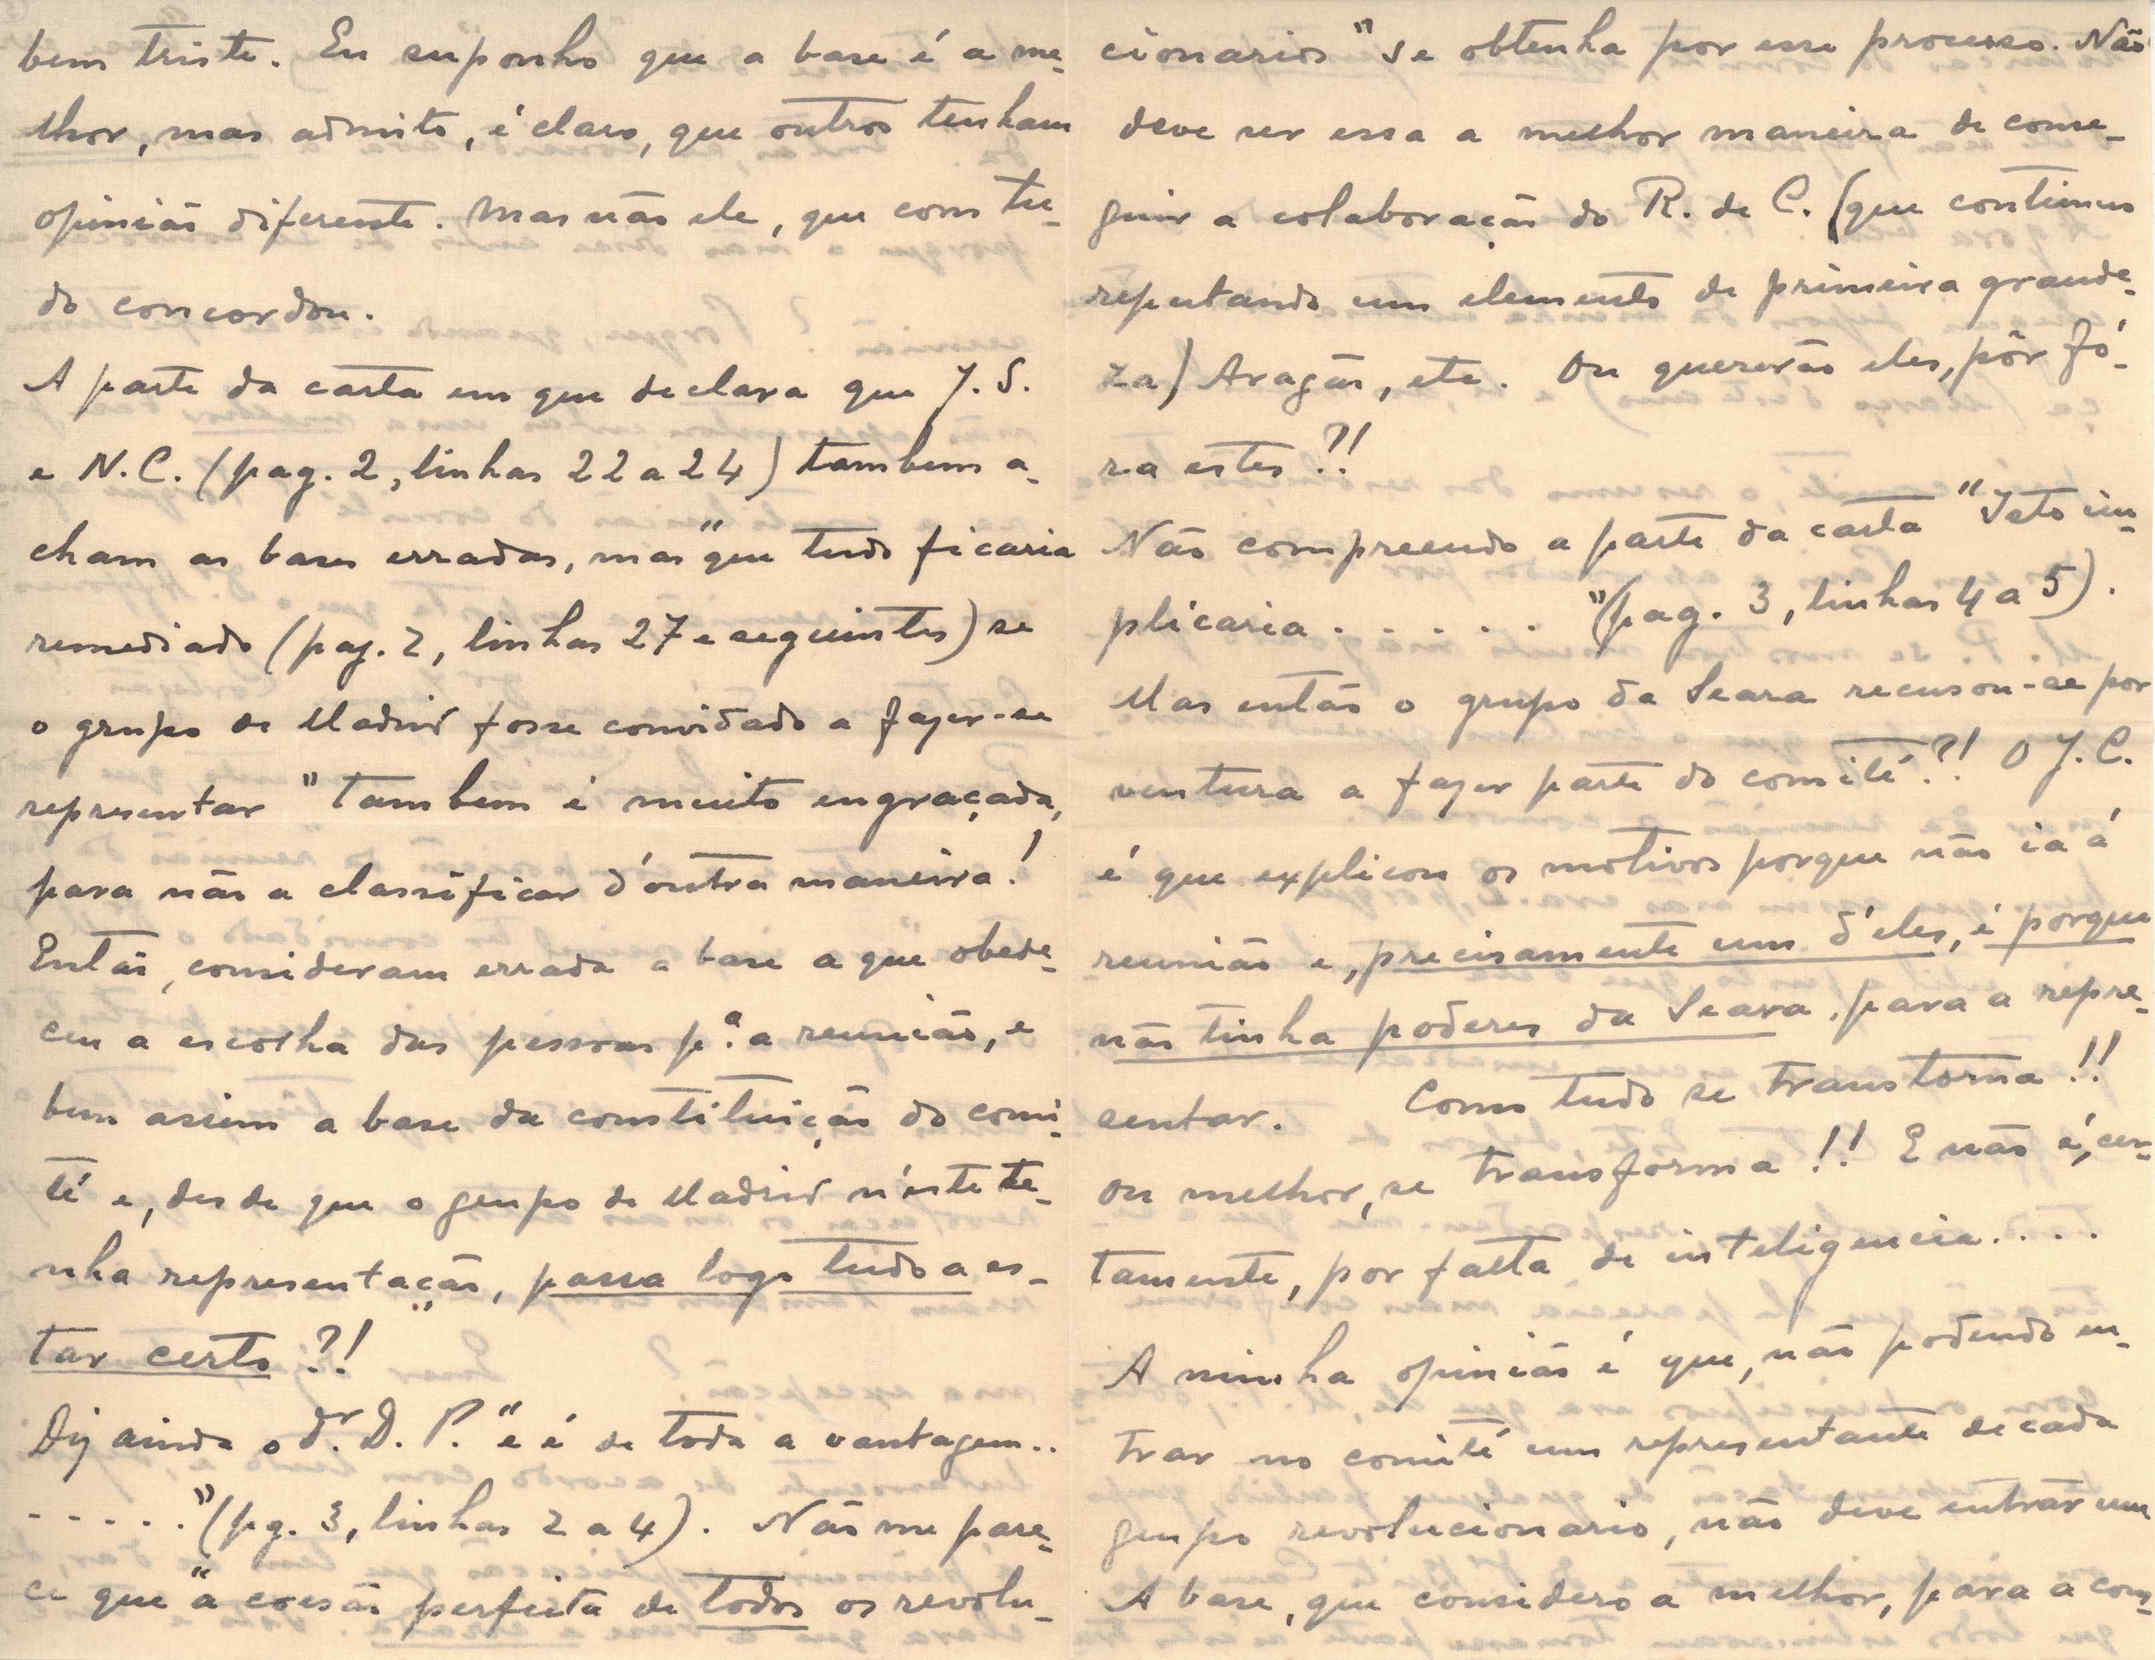 bem triste. Eu suponho que a base é a me-
lhor, mas admito, é claro, que outros tenham
opinião diferente. Mas não ele, que com tu-
do concordou.
A parte da carta em que declara que J. S.
e N. C. (pag. 2, linhas 22 a 24) tambem a-
cham as bases erradas, mas "que tudo ficaria
remediado (pag. 2, linhas 27 e seguintes) se
o grupo de Madrid fosse convidado a fazer-se
representar" tambem é muito engraçada,
para não a classificar d'outra maneira!
Então, consideram errada a base a que obede-
ceu a escolha das pessoas p.ª a reunião, e
bem assim a base da constituição do comi-
té e, desde que o grupo de Madrid n'este te-
nha representação, passa logo tudo a es-
tar certo?!
Diz ainda o dr. D. P. "e é de toda a vantagem..
....." (pg. 3, linhas 2 a 4). Não me pare-
ce que "a coesão perfeita de todos os revolu-
cionarios" se obtenha por esse processo. Não
deve ser essa a melhor maneira de conse-
guir a colaboração do R. de C. (que continuo
reputando um elemento de primeira grande-
za) Aragão, etc. Ou quererão eles, pôr fó-
ra estes?!
Não compreendo a parte da carta "Isto im-
plicaria ....." (pag. 3, linhas 4 a 5).
Mas então o grupo da Seara recusou-se por
ventura a fazer parte do comité?! O J. C.
é que explicou os motivos porque não ia á
reunião e, precisamente um d'eles, é porque
não tinha poderes da Seara, para a repre-
sentar. Como tudo se transtorna!!
Ou melhor, se transforma!! E não é, cer-
tamente, por falta de inteligencia....
A minha opinião é que, não podendo en-
trar no comité um representante de cada
grupo revolucionario, não deve entrar um
A base, que considero a melhor, para a cons-